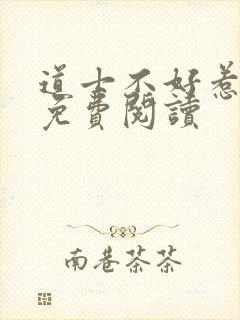 道士不好惹
免費閱讀
南巷茶茶